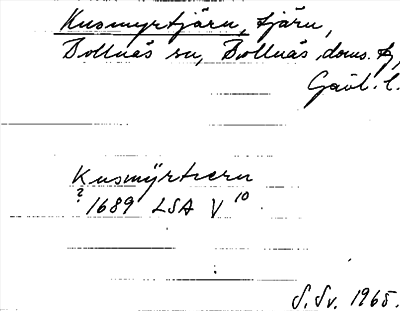 Kusmyrtjärn, tjärn,
Bollnäs sn, Bollnäs doms. tg,
Gävl. l.
Kusmÿrtiern
? 1689 LSA V 10
S. Sv. 1965.